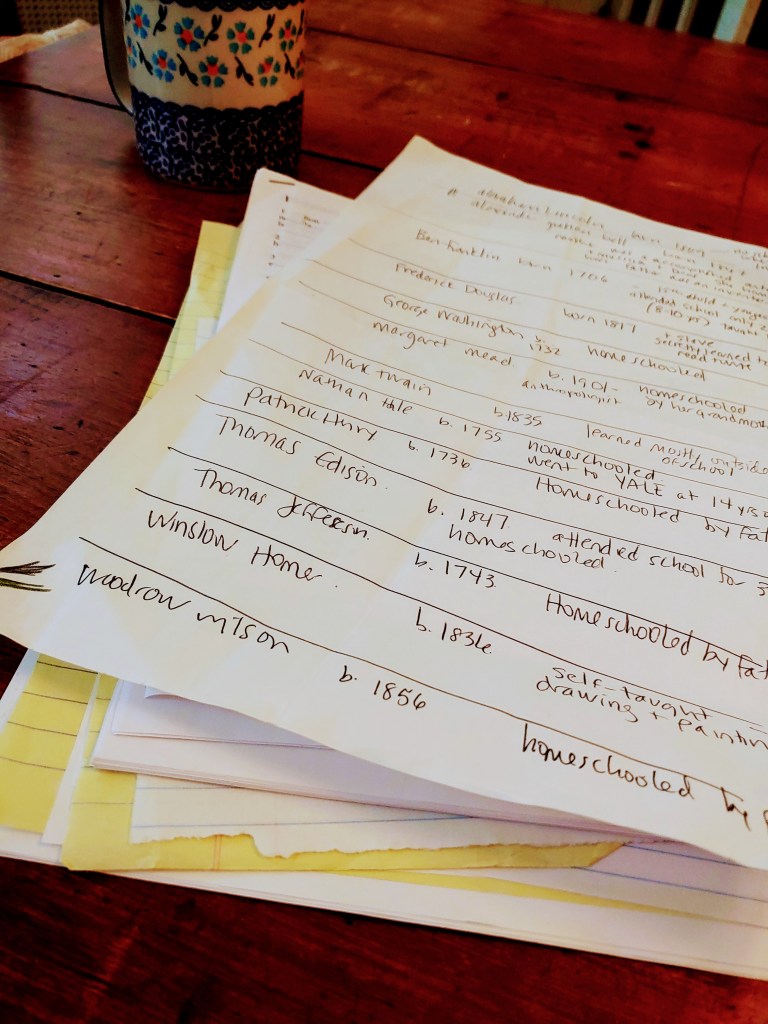 abraham Lincoln born 1809
alexander graham bell born 1847
Ben Franklin born 1706 15th child
attended school only 2
(8-10 yr) taught
Frederick Douglas born 1817 + slave
secretly learned
read + write
George Washington b. 1732 homeschooled
Margaret Mead b. 1901- homeschooled
anthropologist by her grandmoth
Mark Twain b. 1835 learned mostly outside
of school
Nathan Hale b. 1755 homeschooled
went to YALE at 14 yrs
Patrick Henry b. 1736 Homeschooled by Fat
Thomas Edison. b. 1847 attended school for 3
homeschooled.
Thomas Jefferson. b. 1743. Homeschooled by Fat
Winslow Home. b. 1836. self-taught
drawing + paintin
Woodrow Wilson b. 1856 homeschooled by